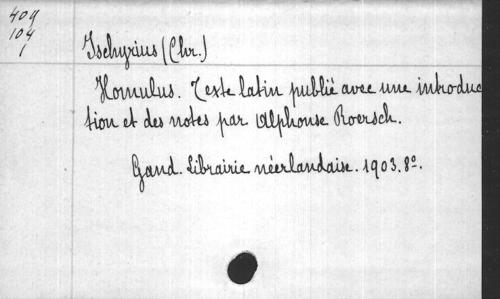 409
104
1
Ischyrius (Chr.)
Homulus. Texte latin publié avec une introduc
tion et des notes par Alphonse Roersch.
Gand. Librairie néerlandaise. 1903. 8º.